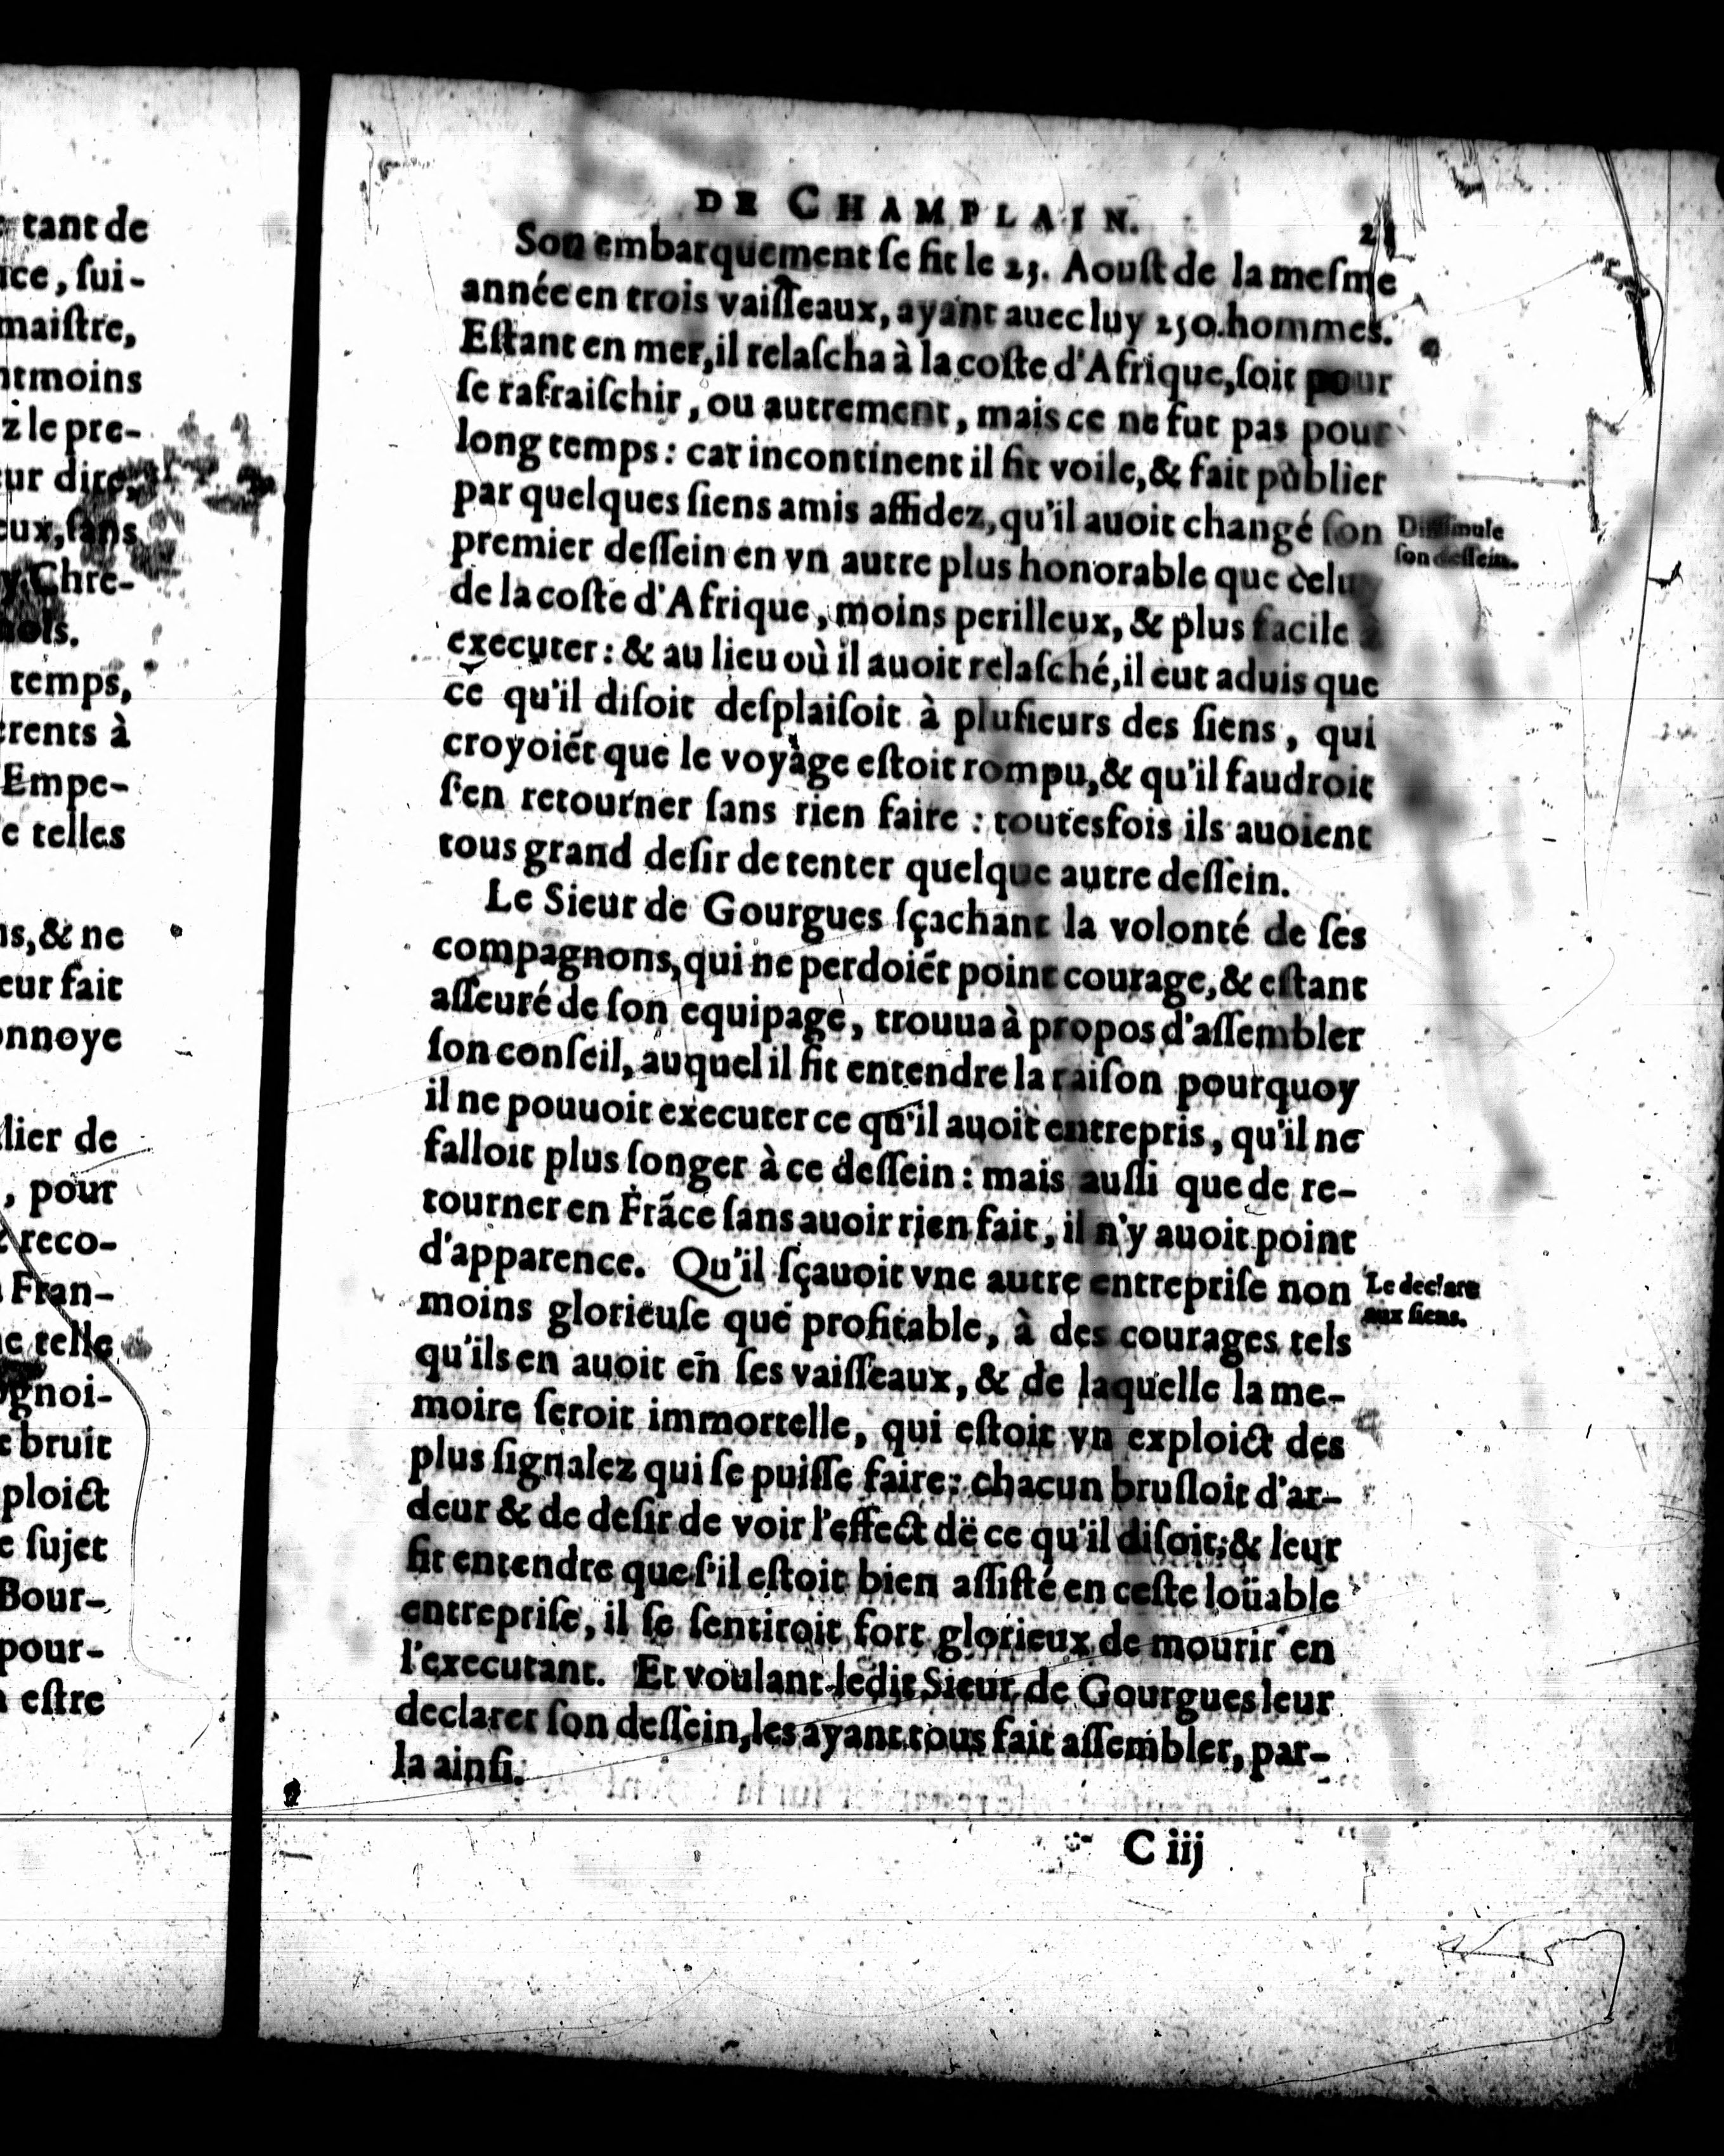 tant de
ce, ſui-
maiſtre,
ntmoins
z le pre-
ur dire,
eux, ſans
y Chre-
nols.
temps,
erents à
Empe-
e telles
ns, & ne
eur fait
onnoye
lier de
, pour
reco-
Fran-
ne telle
ognoi-
e bruit
ploict
e ſujet
Bour-
pour-
eſtre
DE CHAMPLAIN. 21
Son embarquement ſe fit le 23. Aouſt de la meſme
année en trois vaiſſeaux, ayant auec luy 250. hommes.
Eſtant en mer, il relaſcha à la coſte d'Afrique, ſoit pour
ſe rafraiſchir, ou autrement, mais ce ne fut pas pour
long temps : car incontinent il fit voile, & fait publier
par quelques ſiens amis affidez, qu'il auoit changé ſon
premier deſſein en vn autre plus honorable que celuy
de la coſte d'Afrique, moins perilleux, & plus facile à
executer : & au lieu où il auoit relaſché, il eut aduis que
ce qu'il diſoit deſplaiſoit à pluſieurs des ſiens, qui
croyoiẽt que le voyage eſtoit rompu, & qu'il faudroit
ſ'en retourner ſans rien faire : toutesfois ils auoient
tous grand deſir de tenter quelque autre deſſein.
Le Sieur de Gourgues ſçachant la volonté de ſes
compagnons, qui ne perdoiẽt point courage, & eſtant
aſſeuré de ſon equipage, trouua à propos d'aſſembler
ſon conſeil, auquel il fit entendre la raiſon pourquoy
il ne pouuoit executer ce qu'il auoit entrepris, qu'il ne
falloit plus ſonger à ce deſſein : mais auſſi que de re-
tourner en Frãce ſans auoir rien fait, il n'y auoit point
d'apparence. Qu'il ſçauoit vne autre entrepriſe non
moins glorieuſe que profitable, à des courages tels
qu'ils en auoit en ſes vaiſſeaux, & de laquelle la me-
moire ſeroit immortelle, qui eſtoit vn exploict des
plus ſignalez qui ſe puiſſe faire : chacun bruſloit d'ar-
deur & de deſir de voir l'effect de ce qu'il diſoit ; & leur
fit entendre que ſ'il eſtoit bien aſſiſté en ceſte loüable
entrepriſe, il ſe ſentiroit fort glorieux de mourir en
l'executant. Et voulant ledit Sieur de Gourgues leur
declarer ſon deſſein, les ayant tous fait aſſembler, par-
la ainſi.
Diſſimule
ſon deſſein.
Le declare
aux ſiens.
C iij